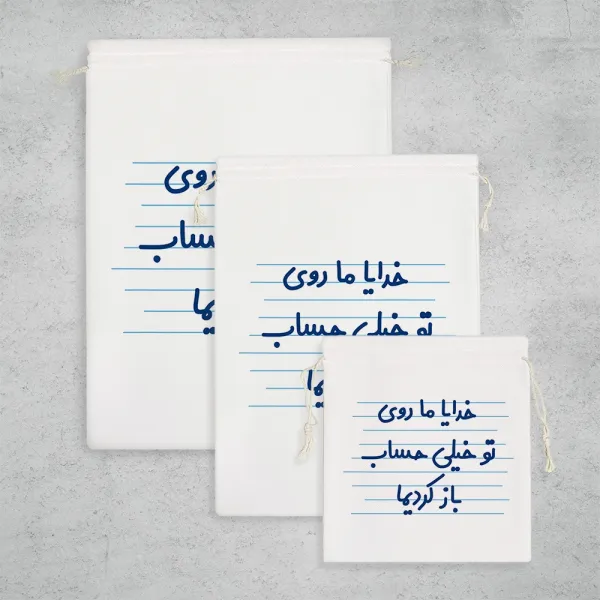 روی
حساب
یما
خدایا ما روی
تو خیلی حساب
خدایا ما روی
تو خیلی حساب
باز کردیما